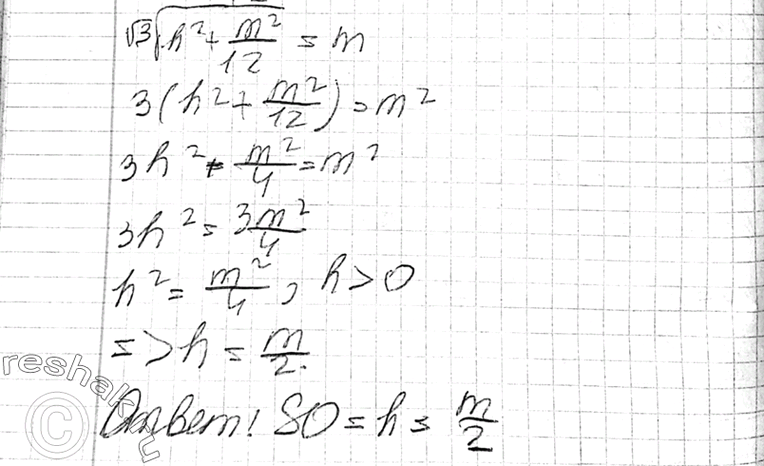 √3√(h² + m²/12) = m
3(h² + m²/12) = m²
3h² + m²/4 = m²
3h² = 3m²/4
h² = m²/4, h > 0
=> h = m/2.
Ответ: SO = h = m/2
reshak.ru
©